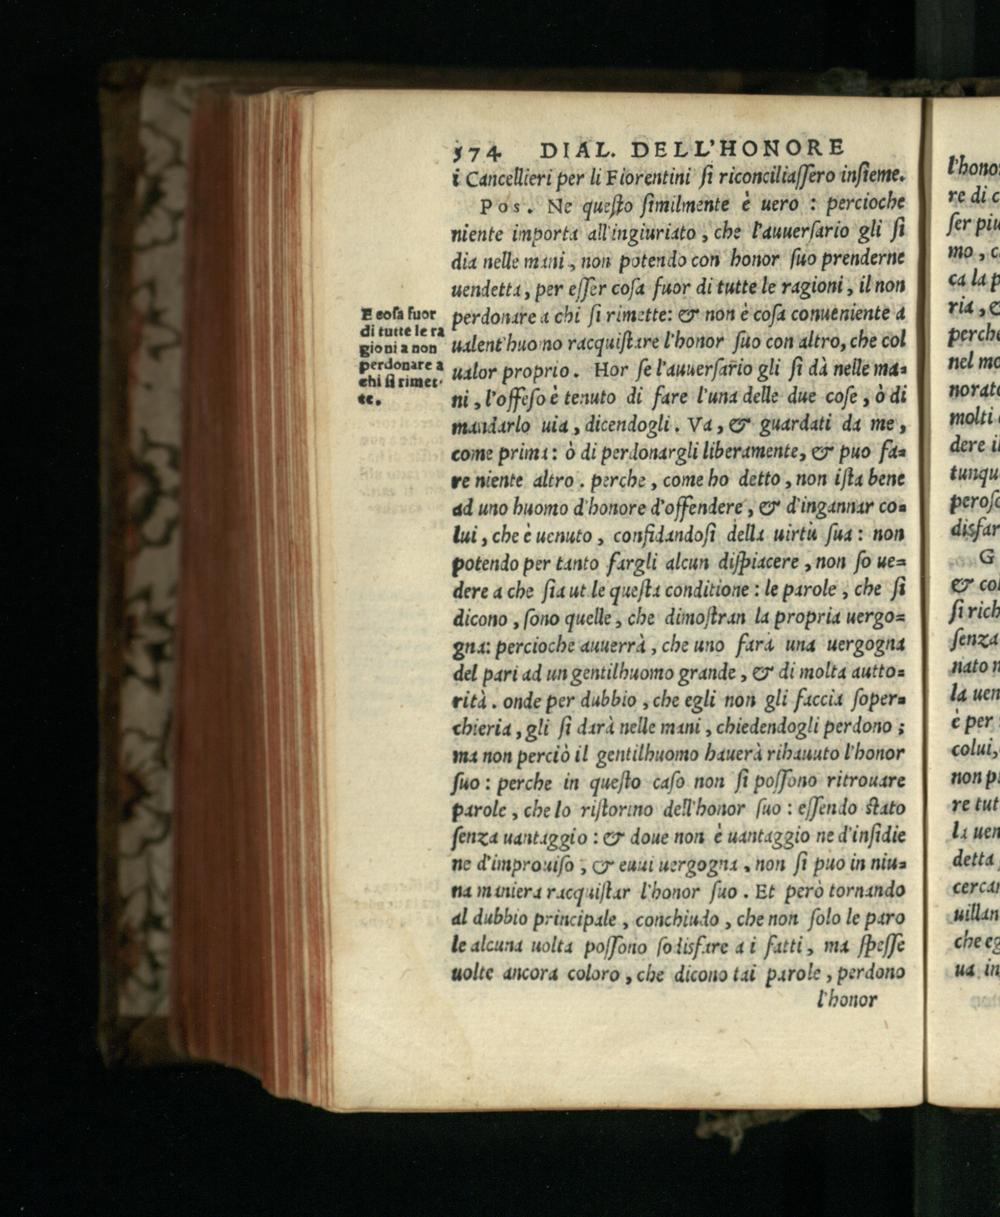 374 DIAL. DELL'HONORE
i Cancellieri per li Fiorentini ſi riconciliaſſero inſieme.
Pos. Ne queſto ſimilmente è uero : percioche
niente importa all'ingiuriato, che l'auuerſario gli ſi
dia nelle mani, non potendo con honor ſuo prenderne
uendetta, per eſſer coſa fuor di tutte le ragioni, il non
perdonare a chi ſi rimette: & non è coſa conueniente a
ualent'huomo racquiſtare l'honor ſuo con altro, che col
ualor proprio. Hor ſe l'auuerſario gli ſi dà nelle ma=
ni, l'offeſo è tenuto di fare l'una delle due coſe, ò di
mandarlo uia, dicendogli. Va, & guardati da me,
come prima: ò di perdonargli liberamente, & puo fa=
re niente altro. perche, come ho detto, non iſta bene
ad uno huomo d'honore d'offendere, & d'ingannar co=
lui, che è uenuto, confidandoſi della uirtù ſua: non
potendo per tanto fargli alcun diſpiacere, non ſo ue=
dere a che ſia utile queſta conditione: le parole, che ſi
dicono, ſono quelle, che dimoſtran la propria uergo=
gna: percioche auuerrà, che uno farà una uergogna
del pari ad un gentilhuomo grande, & di molta autto=
rità. onde per dubbio, che egli non gli faccia ſoper=
chieria, gli ſi darà nelle mani, chiedendogli perdono;
ma non perciò il gentilhuomo hauerà rihauuto l'honor
ſuo: perche in queſto caſo non ſi poſſono ritrouare
parole, che lo riſtorino dell'honor ſuo: eſſendo ſtato
ſenza uantaggio: & doue non è uantaggio ne d'inſidie
ne d'improuiſo, & euui uergogna, non ſi puo in niu=
na maniera racquiſtar l'honor ſuo. Et però tornando
al dubbio principale, conchiudo, che non ſolo le paro
le alcuna uolta poſſono ſodisfare a i fatti, ma ſpeſſe
uolte ancora coloro, che dicono tai parole, perdono
l'honor
E coſa fuor
di tutte le ra
gioni a non
perdonare a
chi ſi rimet-
te.
l'hono
re di c
ſer piu
mo, c
ca la p
ria, &
perche
nel mo
norato
molti
dere il
tunqu
peroſc
disfar
G
& col
ſi rich
ſenza
nato n
la uen
è per
colui,
non p
re tut
la uen
detta
cercar
uillan
che eg
ua in